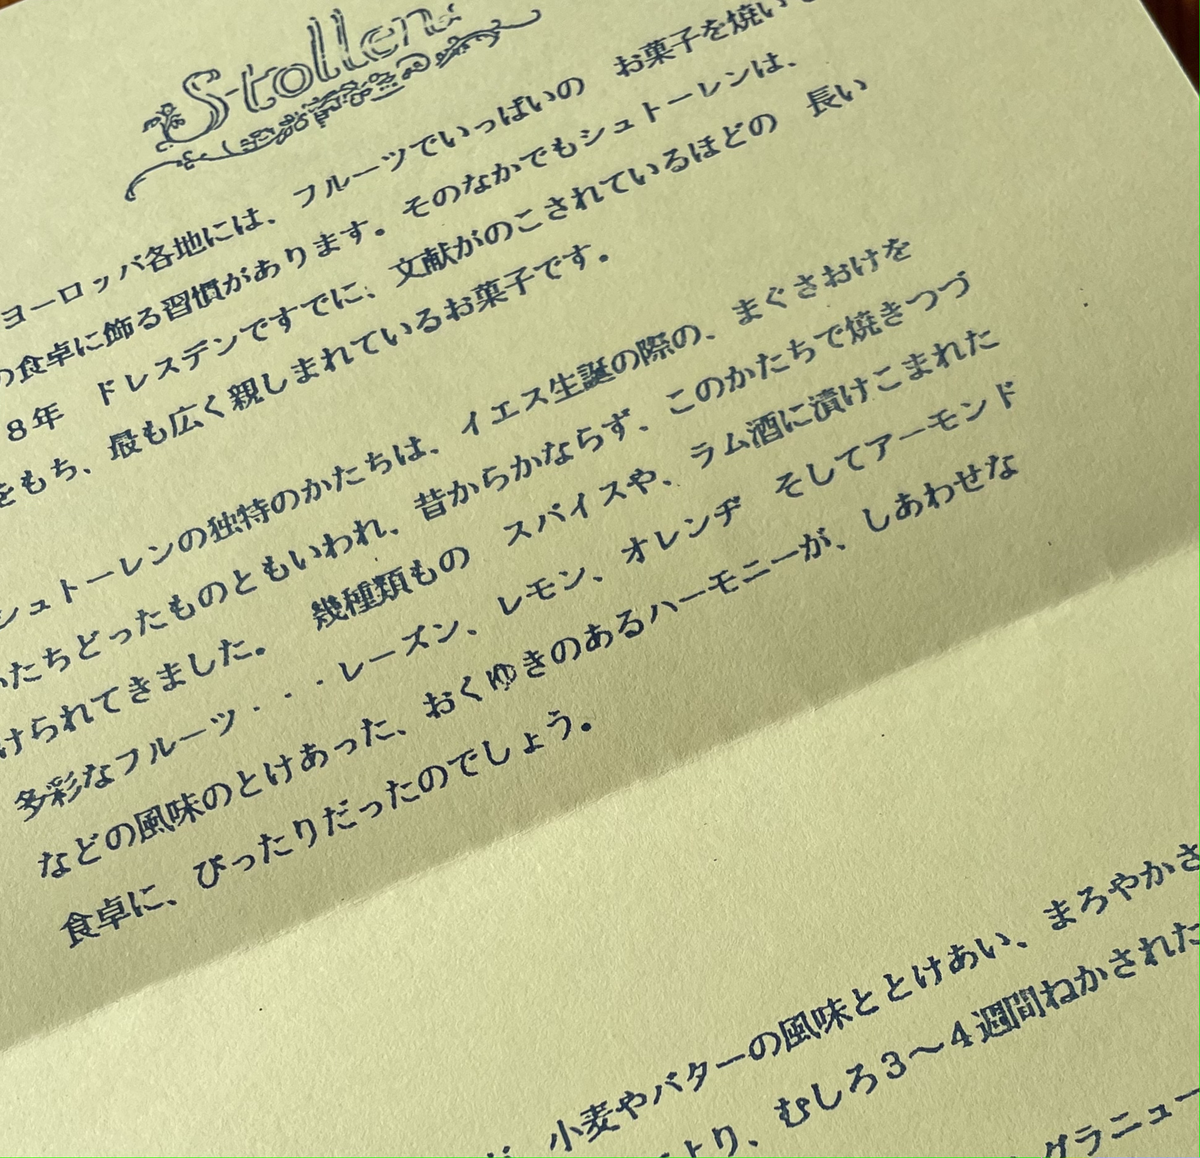 Stollen
ヨーロッパ各地には、フルーツでいっぱいの　お菓子を焼い
の食卓に飾る習慣があります。そのなかでもシュトーレンは、
8年　ドレスデンですでに、文献がのこされているほどの　長い
をもち、最も広く親しまれているお菓子です。
シュトーレンの独特のかたちは、イエス生誕の際の、まぐさおけを
たちどったものともいわれ、昔からかならず、このかたちで焼きつづ
けられてきました。　幾種類もの　スパイスや、ラム酒に漬けこまれた
多彩なフルーツ．．．レーズン、レモン、オレンヂ　そしてアーモンド
などの風味のとけあった、おくゆきのあるハーモニーが、しあわせな
食卓に、ぴったりだったのでしょう。
小麦やバターの風味ととけあい、まろやかさ
より、むしろ3〜4週間ねかされた
グラニュー